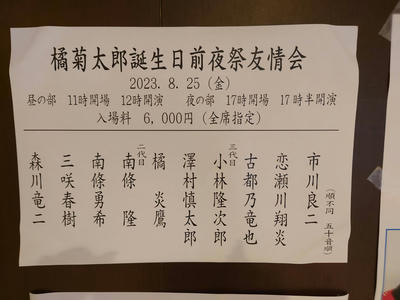 橘菊太郎誕生日前夜祭友情会
2023. 8. 25（金）
昼の部 11時開場 12時開演 夜の部 17時開場 17時半開演
入場料 6,000円（全席指定）
（順不同 五十音順）
市川良二
恋瀬川翔炎
古都乃竜也
三代目 小林隆次郎
澤村慎太郎
橘 炎鷹
二代目 南條 隆
南條勇希
三咲春樹
森川竜二